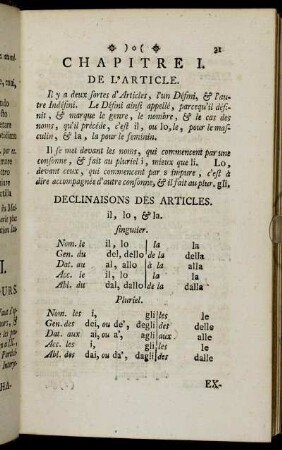 )o( 31
CHAPITRE I.
DE L'ARTICLE.
Il y a deux sortes d'Articles, l'un Défini, & l'au-
tre Indéfini. Le Défini ainsi appellé, parcequ'il défi-
nit, & marque le genre, le nombre, & le cas des
noms, qu'il précéde, c'est il, ou lo, le, pour le mas-
culin, & la, la pour le feminin.
Il se met devant les noms, qui commencent par une
consonne, & fait au pluriel i, mieux que li. Lo,
devant ceux, qui commencent par s impure, c'est à
dire accompagnée d'autre consonne, & il fait au plur. gli.
DECLINAISONS DES ARTICLES.
il, lo, & la.
singulier.
Nom. le il, lo la la
Gen. du del, dello de la della
Dat. au al, allo à la alla
Acc. le il, lo la la
Abl. du dal, dallo de la dalla
Pluriel.
Nom. les i, gli les le
Gen. des dei, ou de', degli des delle
Dat. aux ai, ou a', agli aux alle
Acc. les i, gli les le
Abl. des dai, ou da', dagli des dalle
EX-